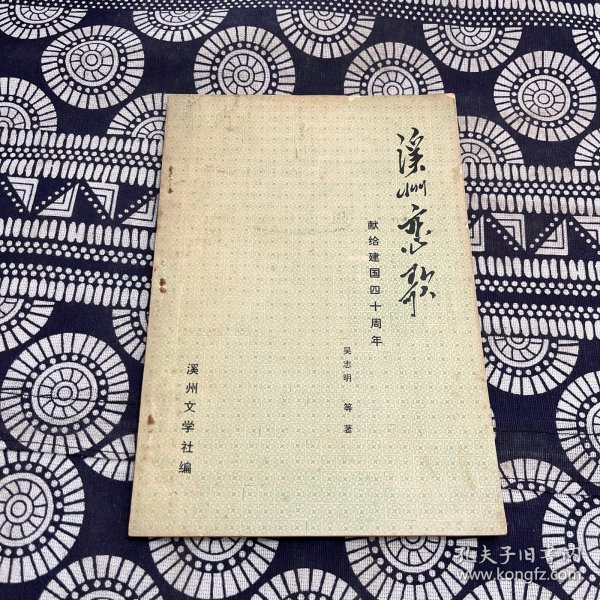 溪州恋歌
献给建国四十周年
吴志明 等著
溪州文学社编
孔夫子旧书网
www.kongfz.com